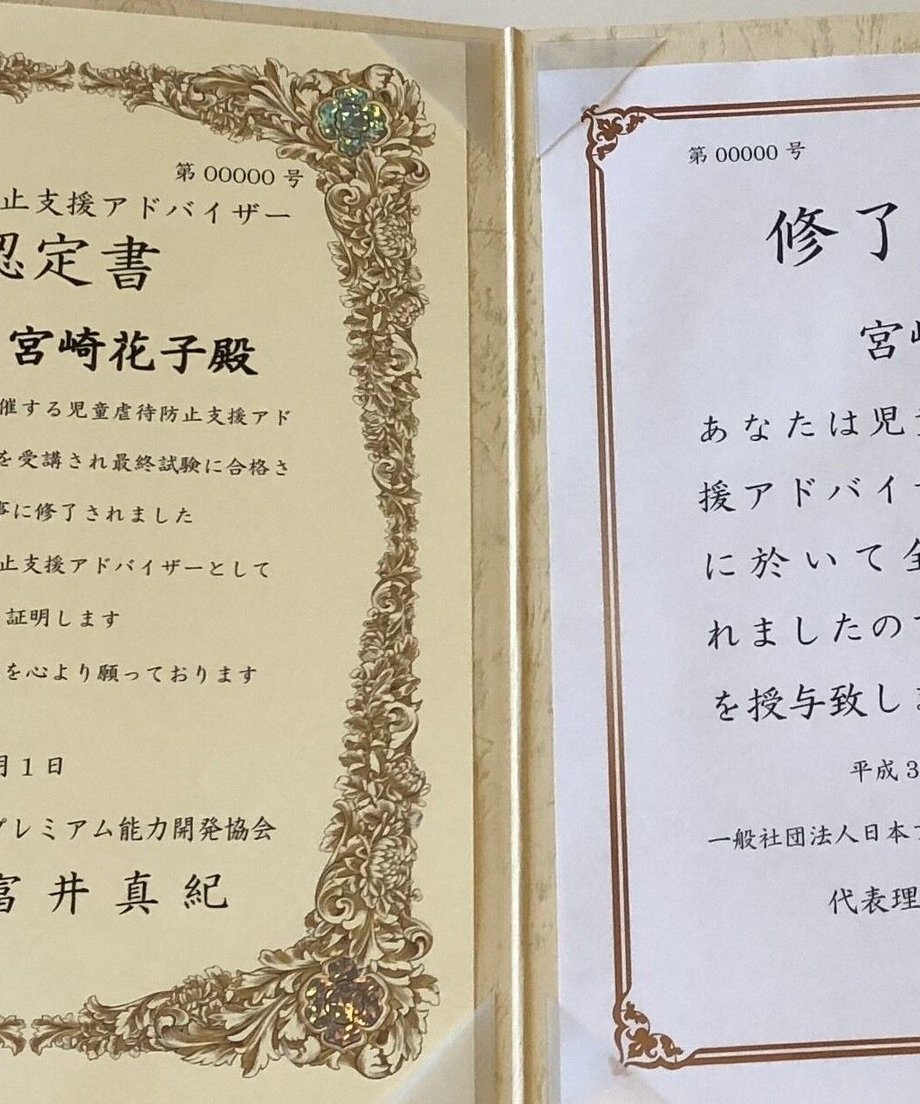 第 00000 号
止支援アドバイザー
認定書
宮崎花子殿
催する児童虐待防止支援アド
を受講され最終試験に合格さ
事に修了されました
止支援アドバイザーとして
証明します
を心より願っております
月1日
プレミアム能力開発協会
富井真紀
第 00000 号
修了
宮崎
あなたは児童
援アドバイザ
に於いて全
れましたので
を授与致しま
平成3
一般社団法人日本プ
代表理